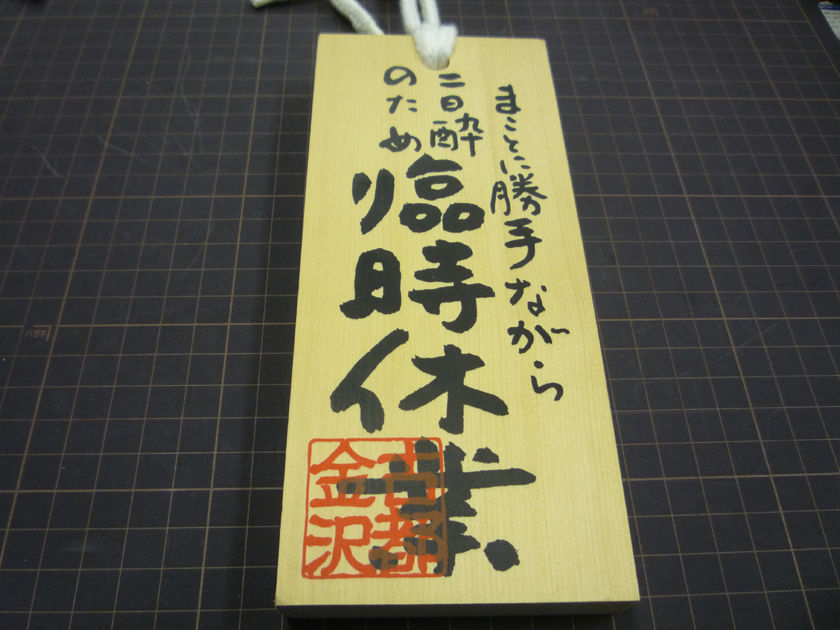 まことに勝手ながら
二日酔
のため
臨時休業
古都
金沢